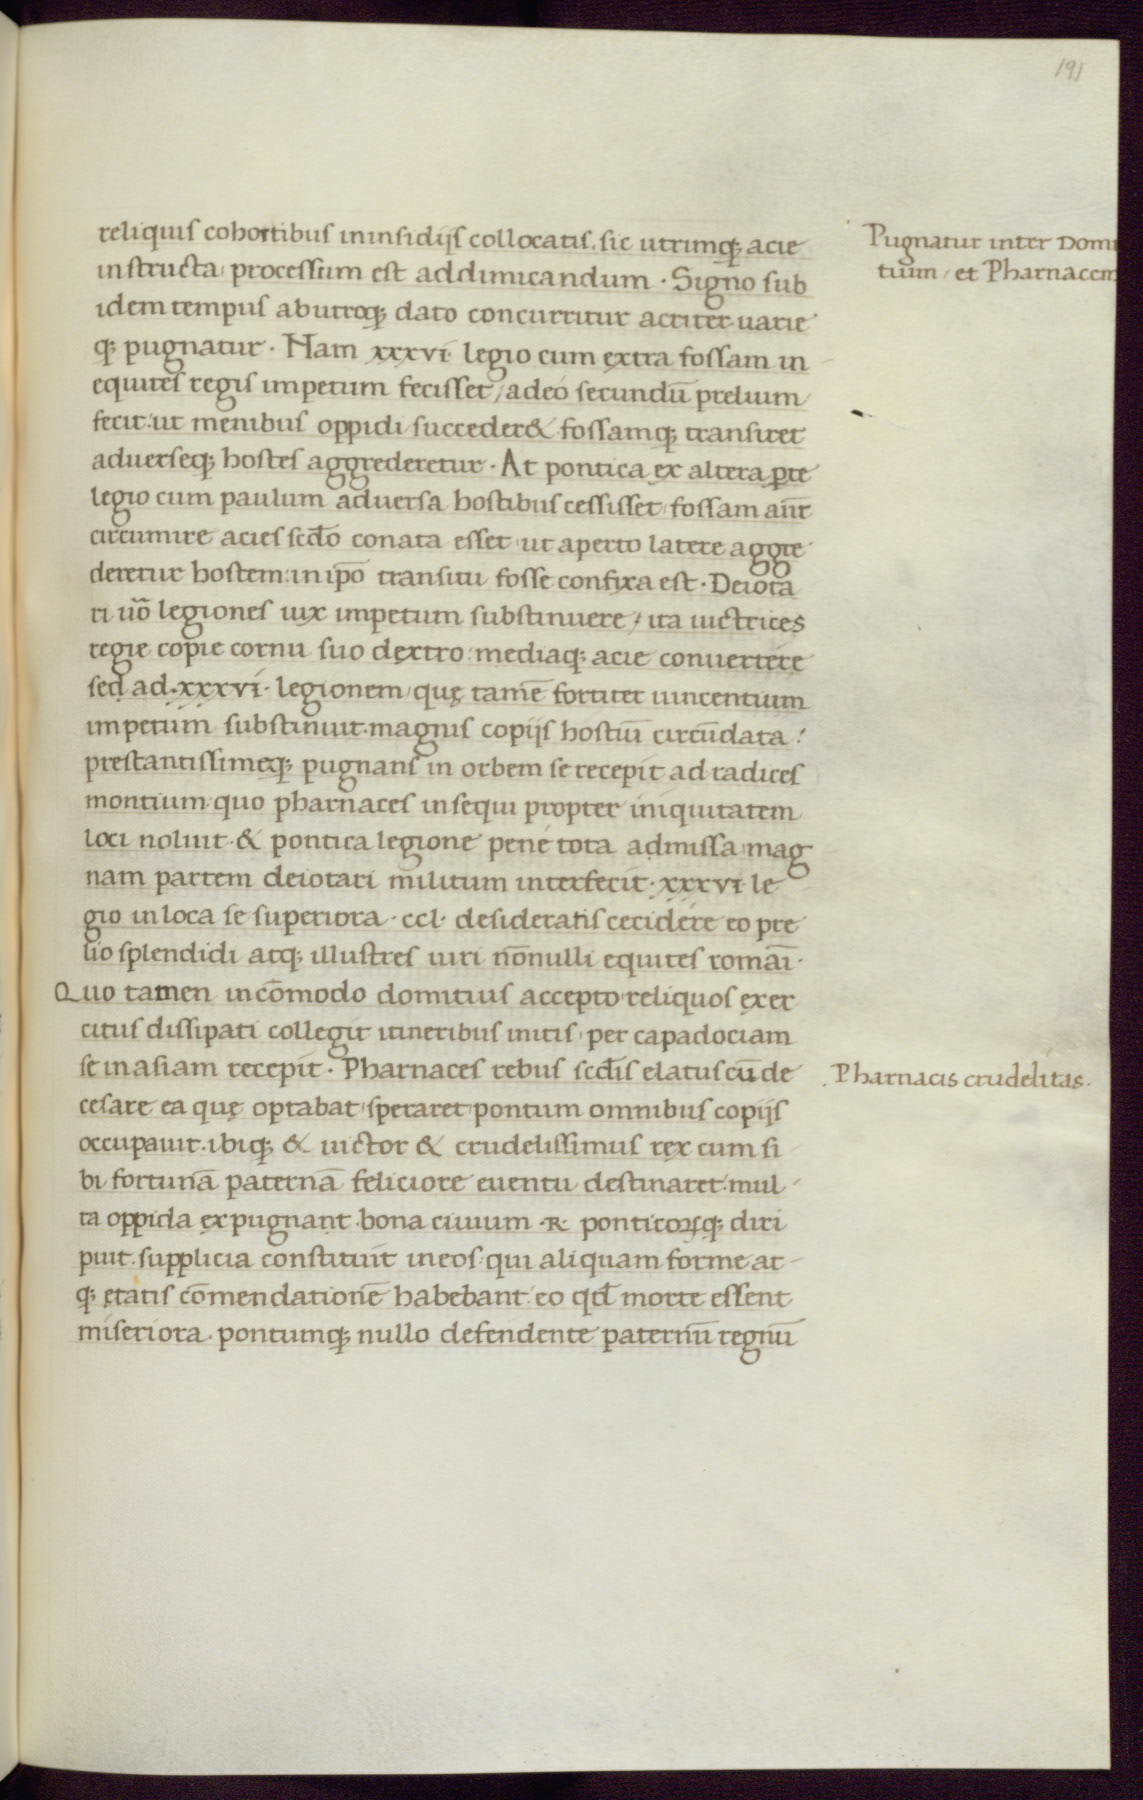 191
reliquis cohortibus in insidijs collocatis. sic utrimq; acie
instructa processum est ad dimicandum · Signo sub
idem tempus ab utroq; dato concurritur acriter uarie
q; pugnatur · Nam xxxvi· legio cum extra fossam in
equites regis impetum fecisset, adeo secundū prelium
fecit: ut menibus oppidi succeder& fossamq; transiret
aduerseq; hostes aggrederetur · At pontica ex altera ꝑte
legio cum paulum aduersa hostibus cessisset fossam aūt
circumire acies scd̄o conata esset ut aperto latere aggre
deretur hostem: in ip̄o transitu fosse confixa est · Deiota
ri uō legiones uix impetum substinuere / ita uictrices
regie copie cornu suo dextro mediaq; acie conuertere
sed ad ·xxxvi· legionem quę tamē fortiter uincentium
impetum substinuit· magnis copijs hostiū circūdata!
prestantissimeq; pugnans in orbem se recepit ad radices
montium quo pharnaces insequi propter iniquitatem
loci noluit · & pontica legione pene tota admissa mag
nam partem deiotari militum interfecit · xxxvi· le
gio in loca se superiora · ccl· desideratis cecidere eo pre
lio splendidi atq; illustres uiri nōnulli equites romāi·
Quo tamen incōmodo domitius accepto reliquos exer
citus dissipati collegit itineribus initis per capadociam
se in asiam recepit · Pharnaces rebus scd̄is elatus cū de
cesare ea quę optabat speraret pontum omnibus copijs
occupauit · ibiq; & uictor & crudelissimus rex cum si
bi fortunā paternā feliciore euentu destinaret· mul
ta oppida expugnant · bona ciuium ·R· ponticoꝝq; diri
puit · supplicia constituit in eos· qui aliquam forme at
q; ętatis cōmendationē habebant eo qd̄ morte essent
miseriora · pontumq; nullo defendente paternū regnū
Pugnatur inter Domi
tium / et Pharnacem
Pharnacis crudelitas·